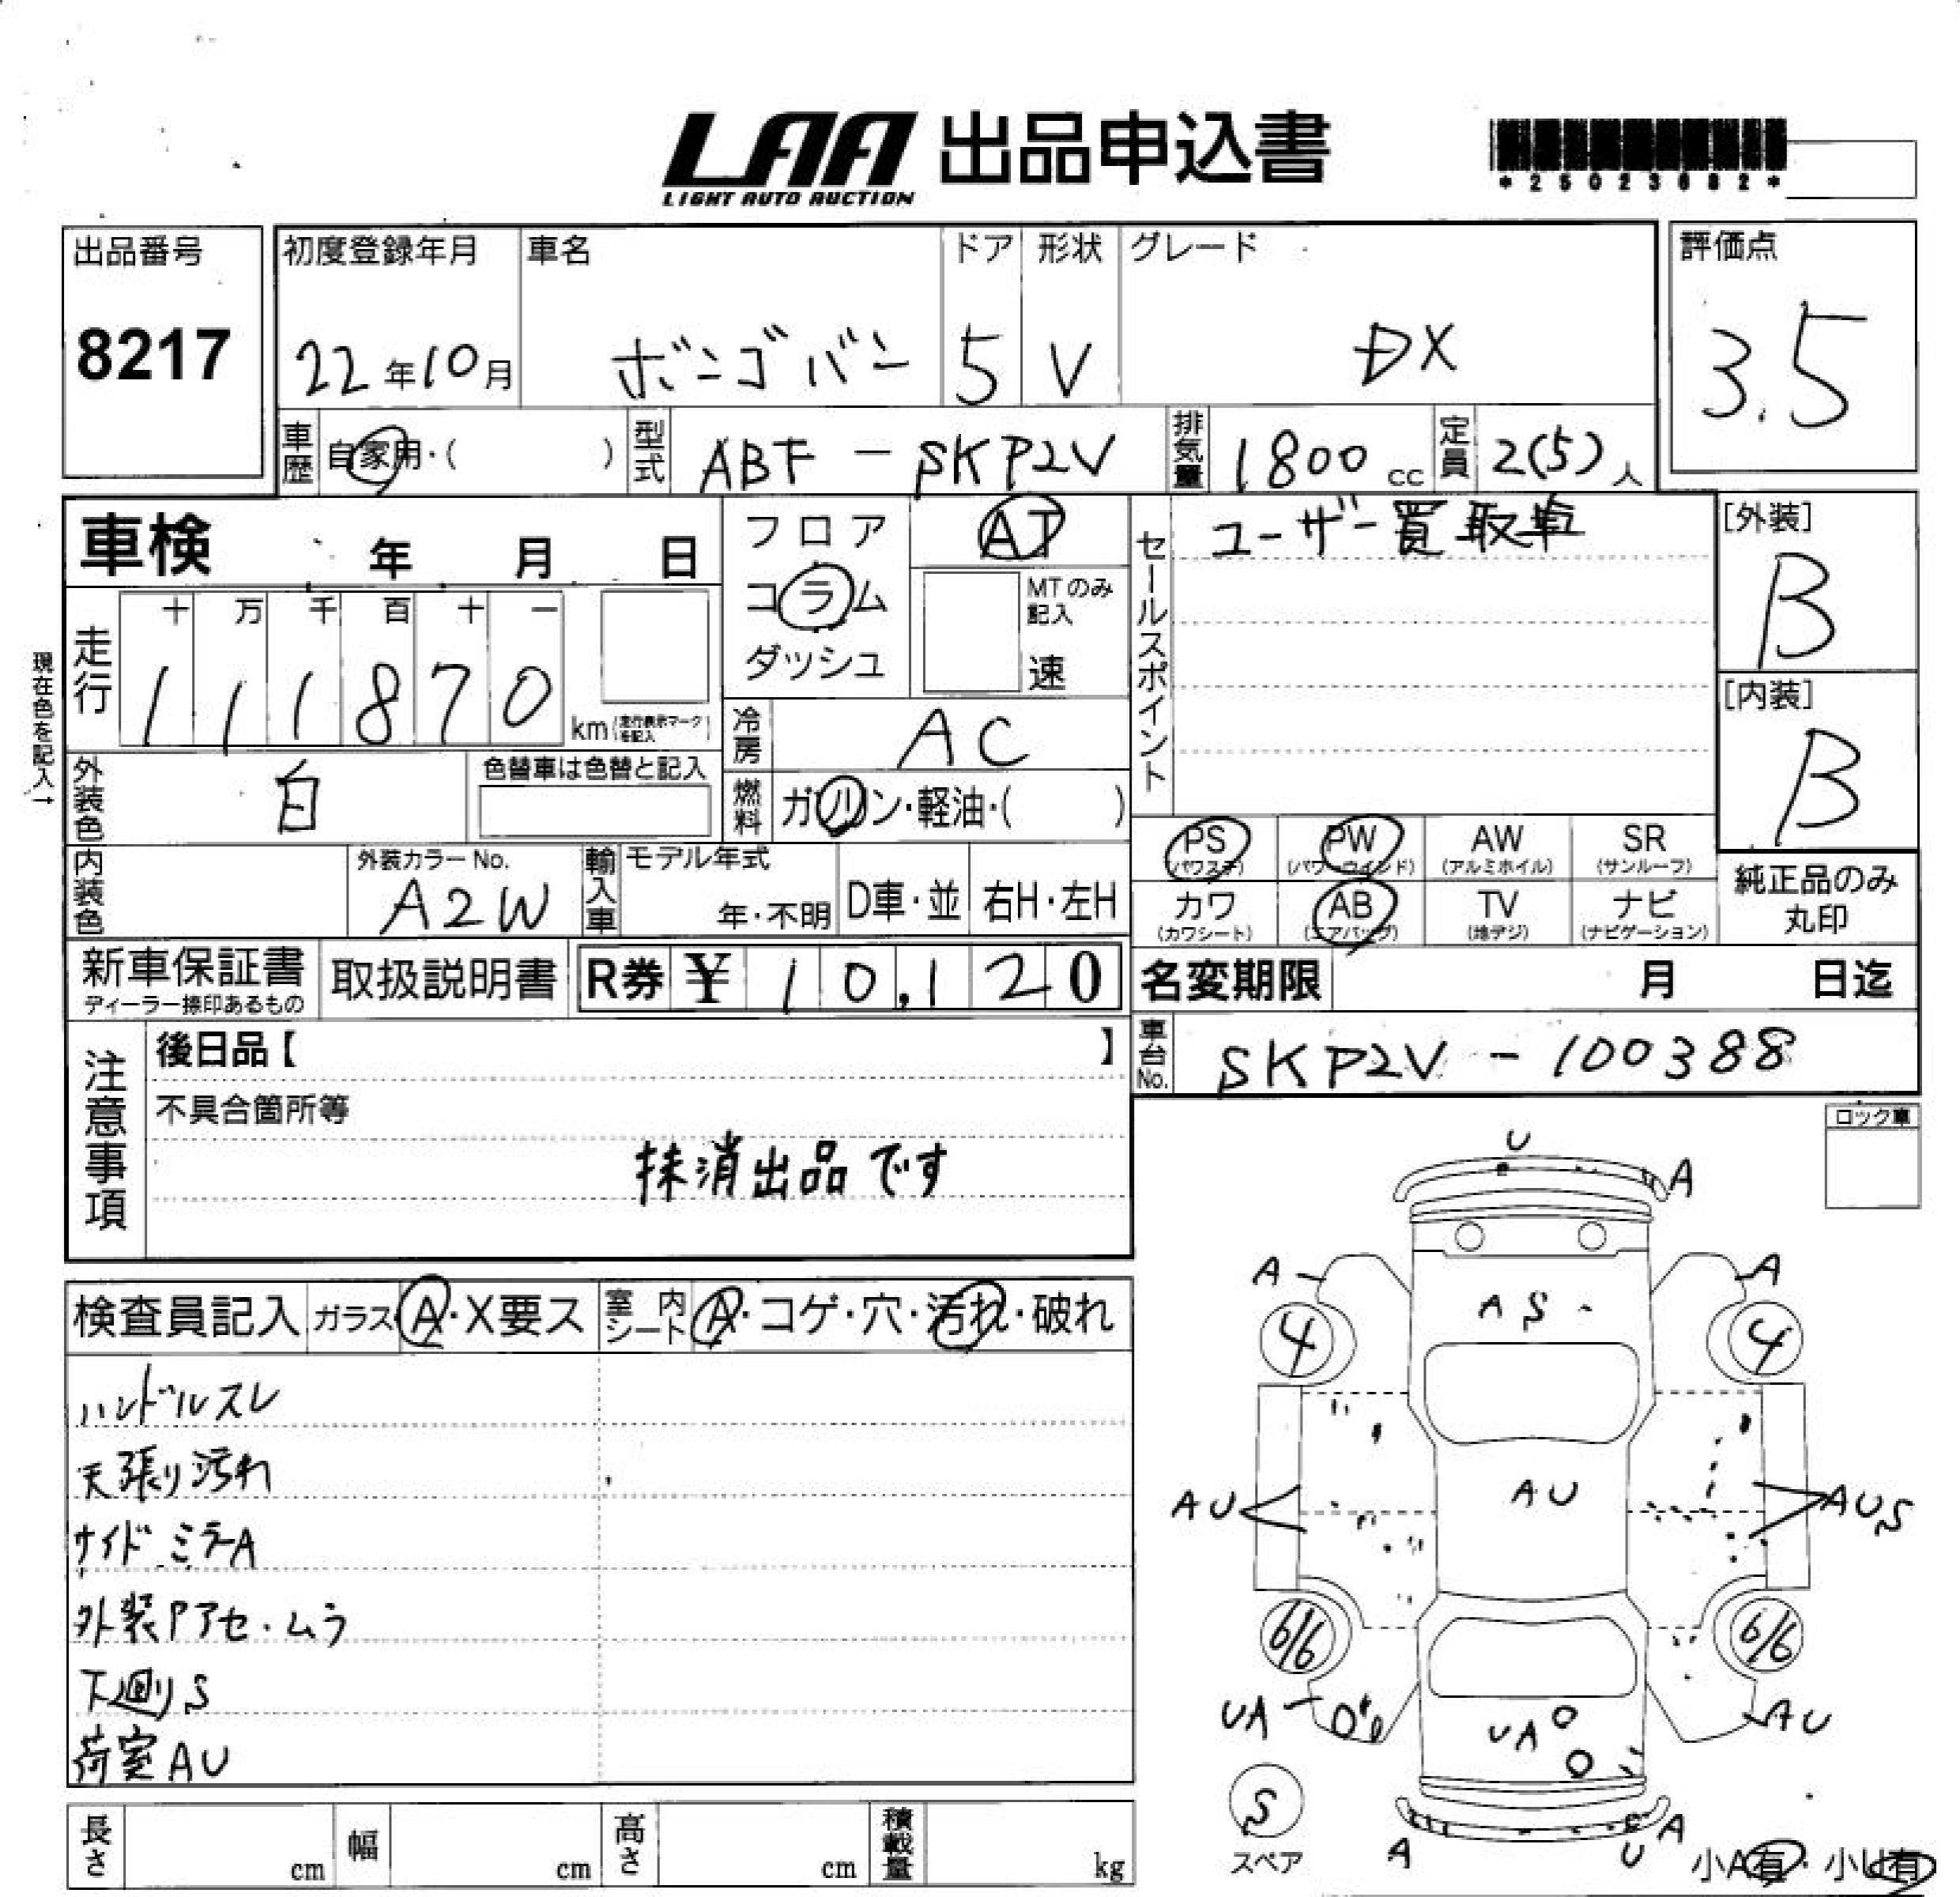 LAA 出品申込書
LIGHT AUTO AUCTION
*25023682*
出品番号
8217
初度登録年月
22年10月
車名
ボンゴバン
ドア
5
形状
V
グレード
DX
評価点
3.5
車歴 自家用・( )
型式 ABF-SKP2V
排気量 1800cc
定員 2(5)人
車検 年 月 日
フロア
コラム
ダッシュ
AT
MTのみ記入
速
セールスポイント
ユーザー買取車
[外装]
B
[内装]
B
現在色を記入→
走行
十 万 千 百 十 一
1 1 1 8 7 0 km(走行表示マークを記入)
冷房 AC
外装色 白
色替車は色替と記入
燃料 ガソリン・軽油・( )
PS (パワステ)
PW (パワーウインド)
AW (アルミホイル)
SR (サンルーフ)
カワ (カワシート)
AB (エアバッグ)
TV (地デジ)
ナビ (ナビゲーション)
純正品のみ
丸印
内装色
外装カラーNo.
A2W
輸入車
モデル年式
年・不明
D車・並
右H・左H
新車保証書
ディーラー捺印あるもの
取扱説明書
R券 ¥ 10,120
名変期限 月 日迄
車台No. SKP2V-100388
注意事項
後日品【 】
不具合箇所等
抹消出品です
ロック車
検査員記入
ガラス A・X要ス
室内シート A・コゲ・穴・汚れ・破れ
ハンドルスレ
天張り汚れ
サイドミラーA
外装Pアセ・ムラ
下廻りS
荷室AU
U
A
A
A
AS
4
4
AU
AU
AUS
6/6
6/6
UA
UA
AU
S
スペア
A
A
U
小A有・小U有
長さ cm
幅 cm
高さ cm
積載量 kg